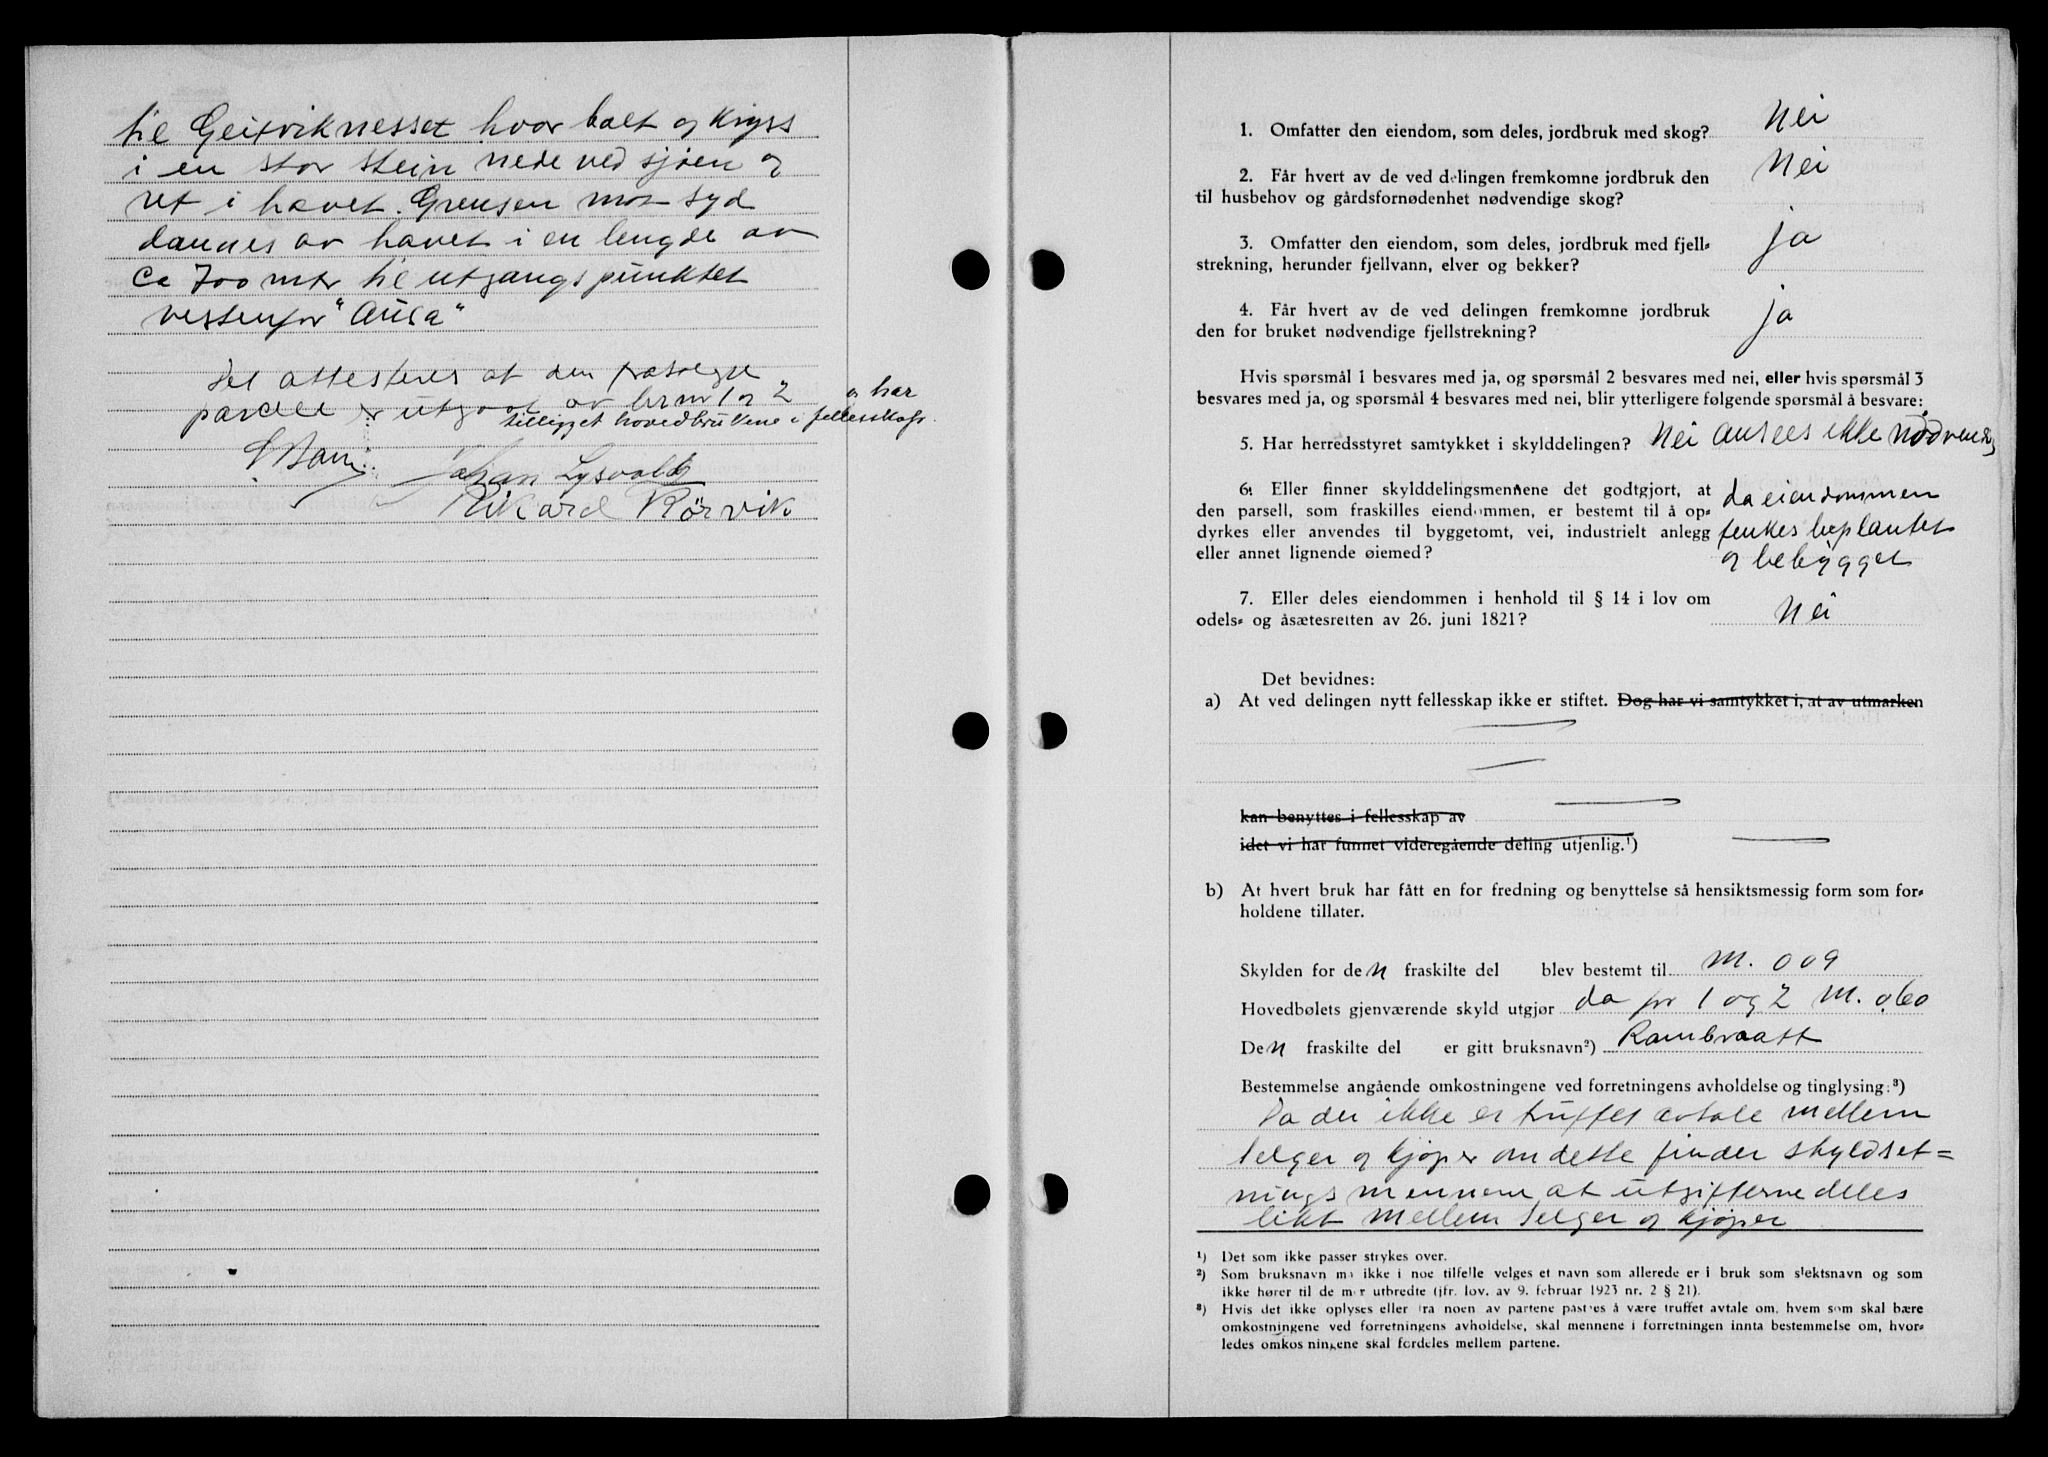 til Geitviknesset hvor bolt og kryss
i en stor stein nede ved sjøen og
ut i havet. Grensen mot syd
dannes av havet i en lengde av
ca 700 mtr til utgangspunktet
vestenfor "Ausa"
Det attesteres at den fraskilte
parcell er utgaat av br nr 1 og 2 og har
tilligget hovedbrukene i fellesskap.
Johan Lysvold
Rikard Rörvik
1. Omfatter den eiendom, som deles, jordbruk med skog? Nei
2. Får hvert av de ved delingen fremkomne jordbruk den
til husbehov og gårdsfornødenhet nødvendige skog? Nei
3. Omfatter den eiendom, som deles, jordbruk med fjell=
strekning, herunder fjellvann, elver og bekker? ja
4. Får hvert av de ved delingen fremkomne jordbruk
den for bruket nødvendige fjellstrekning? ja
Hvis spørsmål 1 besvares med ja, og spørsmål 2 besvares med nei, eller hvis spørsmål 3
besvares med ja, og spørsmål 4 besvares med nei, blir ytterligere følgende spørsmål å besvare:
5. Har herredsstyret samtykket i skylddelingen? Nei ansees ikke nödvendig
6. Eller finner skylddelingsmennene det godtgjort, at
den parsell, som fraskilles eiendommen, er bestemt til å op=
dyrkes eller anvendes til byggetomt, vei, industrielt anlegg
eller annet lignende øiemed?
da eiendommen
tenkes beplantet
og bebygget
7. Eller deles eiendommen i henhold til § 14 i lov om
odels= og åsætesretten av 26. juni 1821? Nei
Det bevidnes:
a) At ved delingen nytt fellesskap ikke er stiftet. Dog har vi samtykket i, at av utmarken
kan benyttes i fellesskap av
idet vi har funnet videregående deling utjenlig.¹)
b) At hvert bruk har fått en for fredning og benyttelse så hensiktsmessig form som for=
holdene tillater.
Skylden for den fraskilte del blev bestemt til m. 009
Hovedbølets gjenværende skyld utgjør da for 1 og 2 m. 060
Den fraskilte del er gitt bruksnavn²) Rambraatt
Bestemmelse angående omkostningene ved forretningens avholdelse og tinglysing:³)
Da der ikke er truffet avtale mellem
selger og kjøper om dette finder skyldset=
ningsmennene at utgifterne deles
likt mellem selger og kjøper
¹) Det som ikke passer strykes over.
²) Som bruksnavn må ikke i noe tilfelle velges et navn som allerede er i bruk som slektsnavn og som
ikke hører til de mer utbredte (jfr. lov. av 9. februar 1923 nr. 2 § 21).
³) Hvis det ikke oplyses eller fra noen av partene påstås å være truffet avtale om, hvem som skal bære
omkostningene ved forretningens avholdelse, skal mennene i forretningen innta bestemmelse om, hvor=
ledes omkostningene skal fordeles mellem partene.